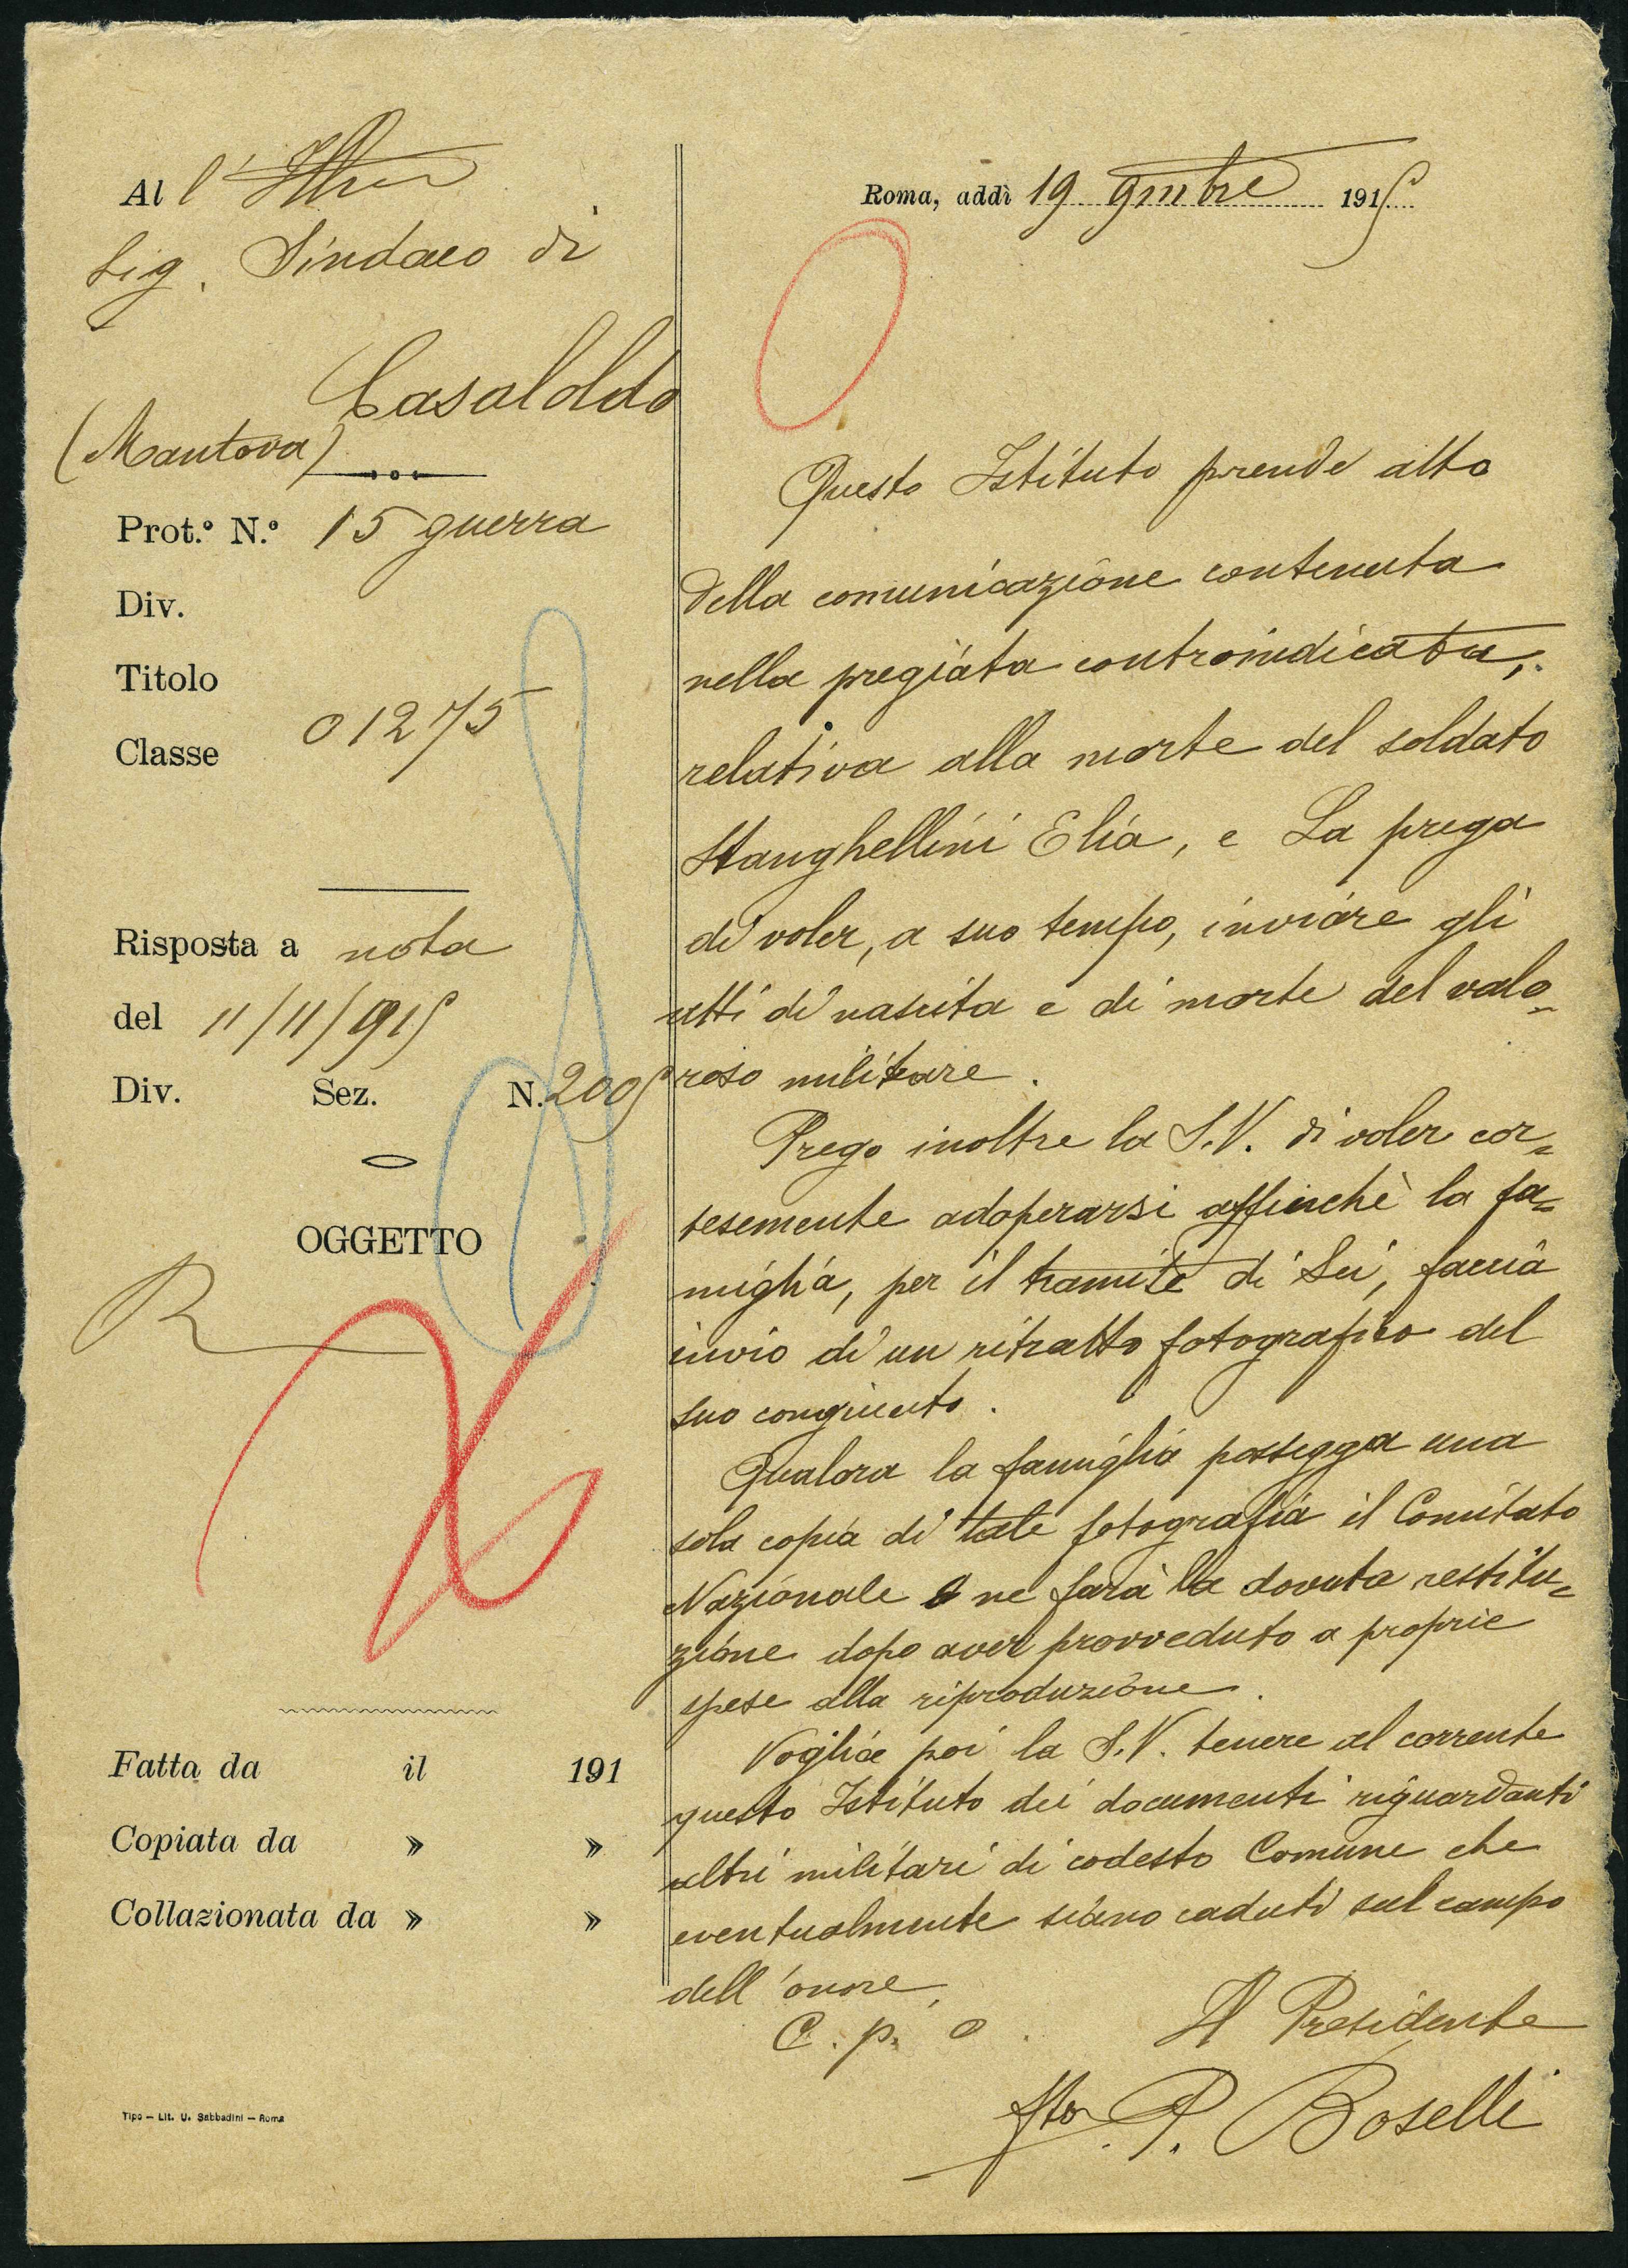 Al l' Ill.mo
Sig. Sindaco di
Casaloldo
(Mantova)
Prot.º N.º 15 guerra
Div.
Titolo
Classe
01275
Risposta a nota
del 11/11/915
Div. Sez. N. 2005
OGGETTO
R
Fatta da il 191
Copiata da » »
Collazionata da » »
Tipo – Lit. U. Sabbadini – Roma
Roma, addì 19 9mbre 1915
Questo Istituto prende atto
della comunicazione contenuta
nella pregiata controindicata,
relativa alla morte del soldato
Stanghellini Elia, e La prega
di voler, a suo tempo, inviare gli
atti di nascita e di morte del valo=
roso militare.
Prego inoltre la S.V. di voler cor=
tesemente adoperarsi affinchè la fa=
miglia, per il tramite di Lei, faccia
invio di un ritratto fotografico del
suo congiunto.
Qualora la famiglia possegga una
sola copia di tale fotografia il Comitato
Nazionale ne farà la dovuta restitu=
zione dopo aver provveduto a proprie
spese alla riproduzione.
Voglia poi la S.V. tenere al corrente
questo Istituto dei documenti riguardanti
altri militari di codesto Comune che
eventualmente siano caduti sul campo
dell'onore.
C. p. o. Il Presidente
fto. P. Boselli